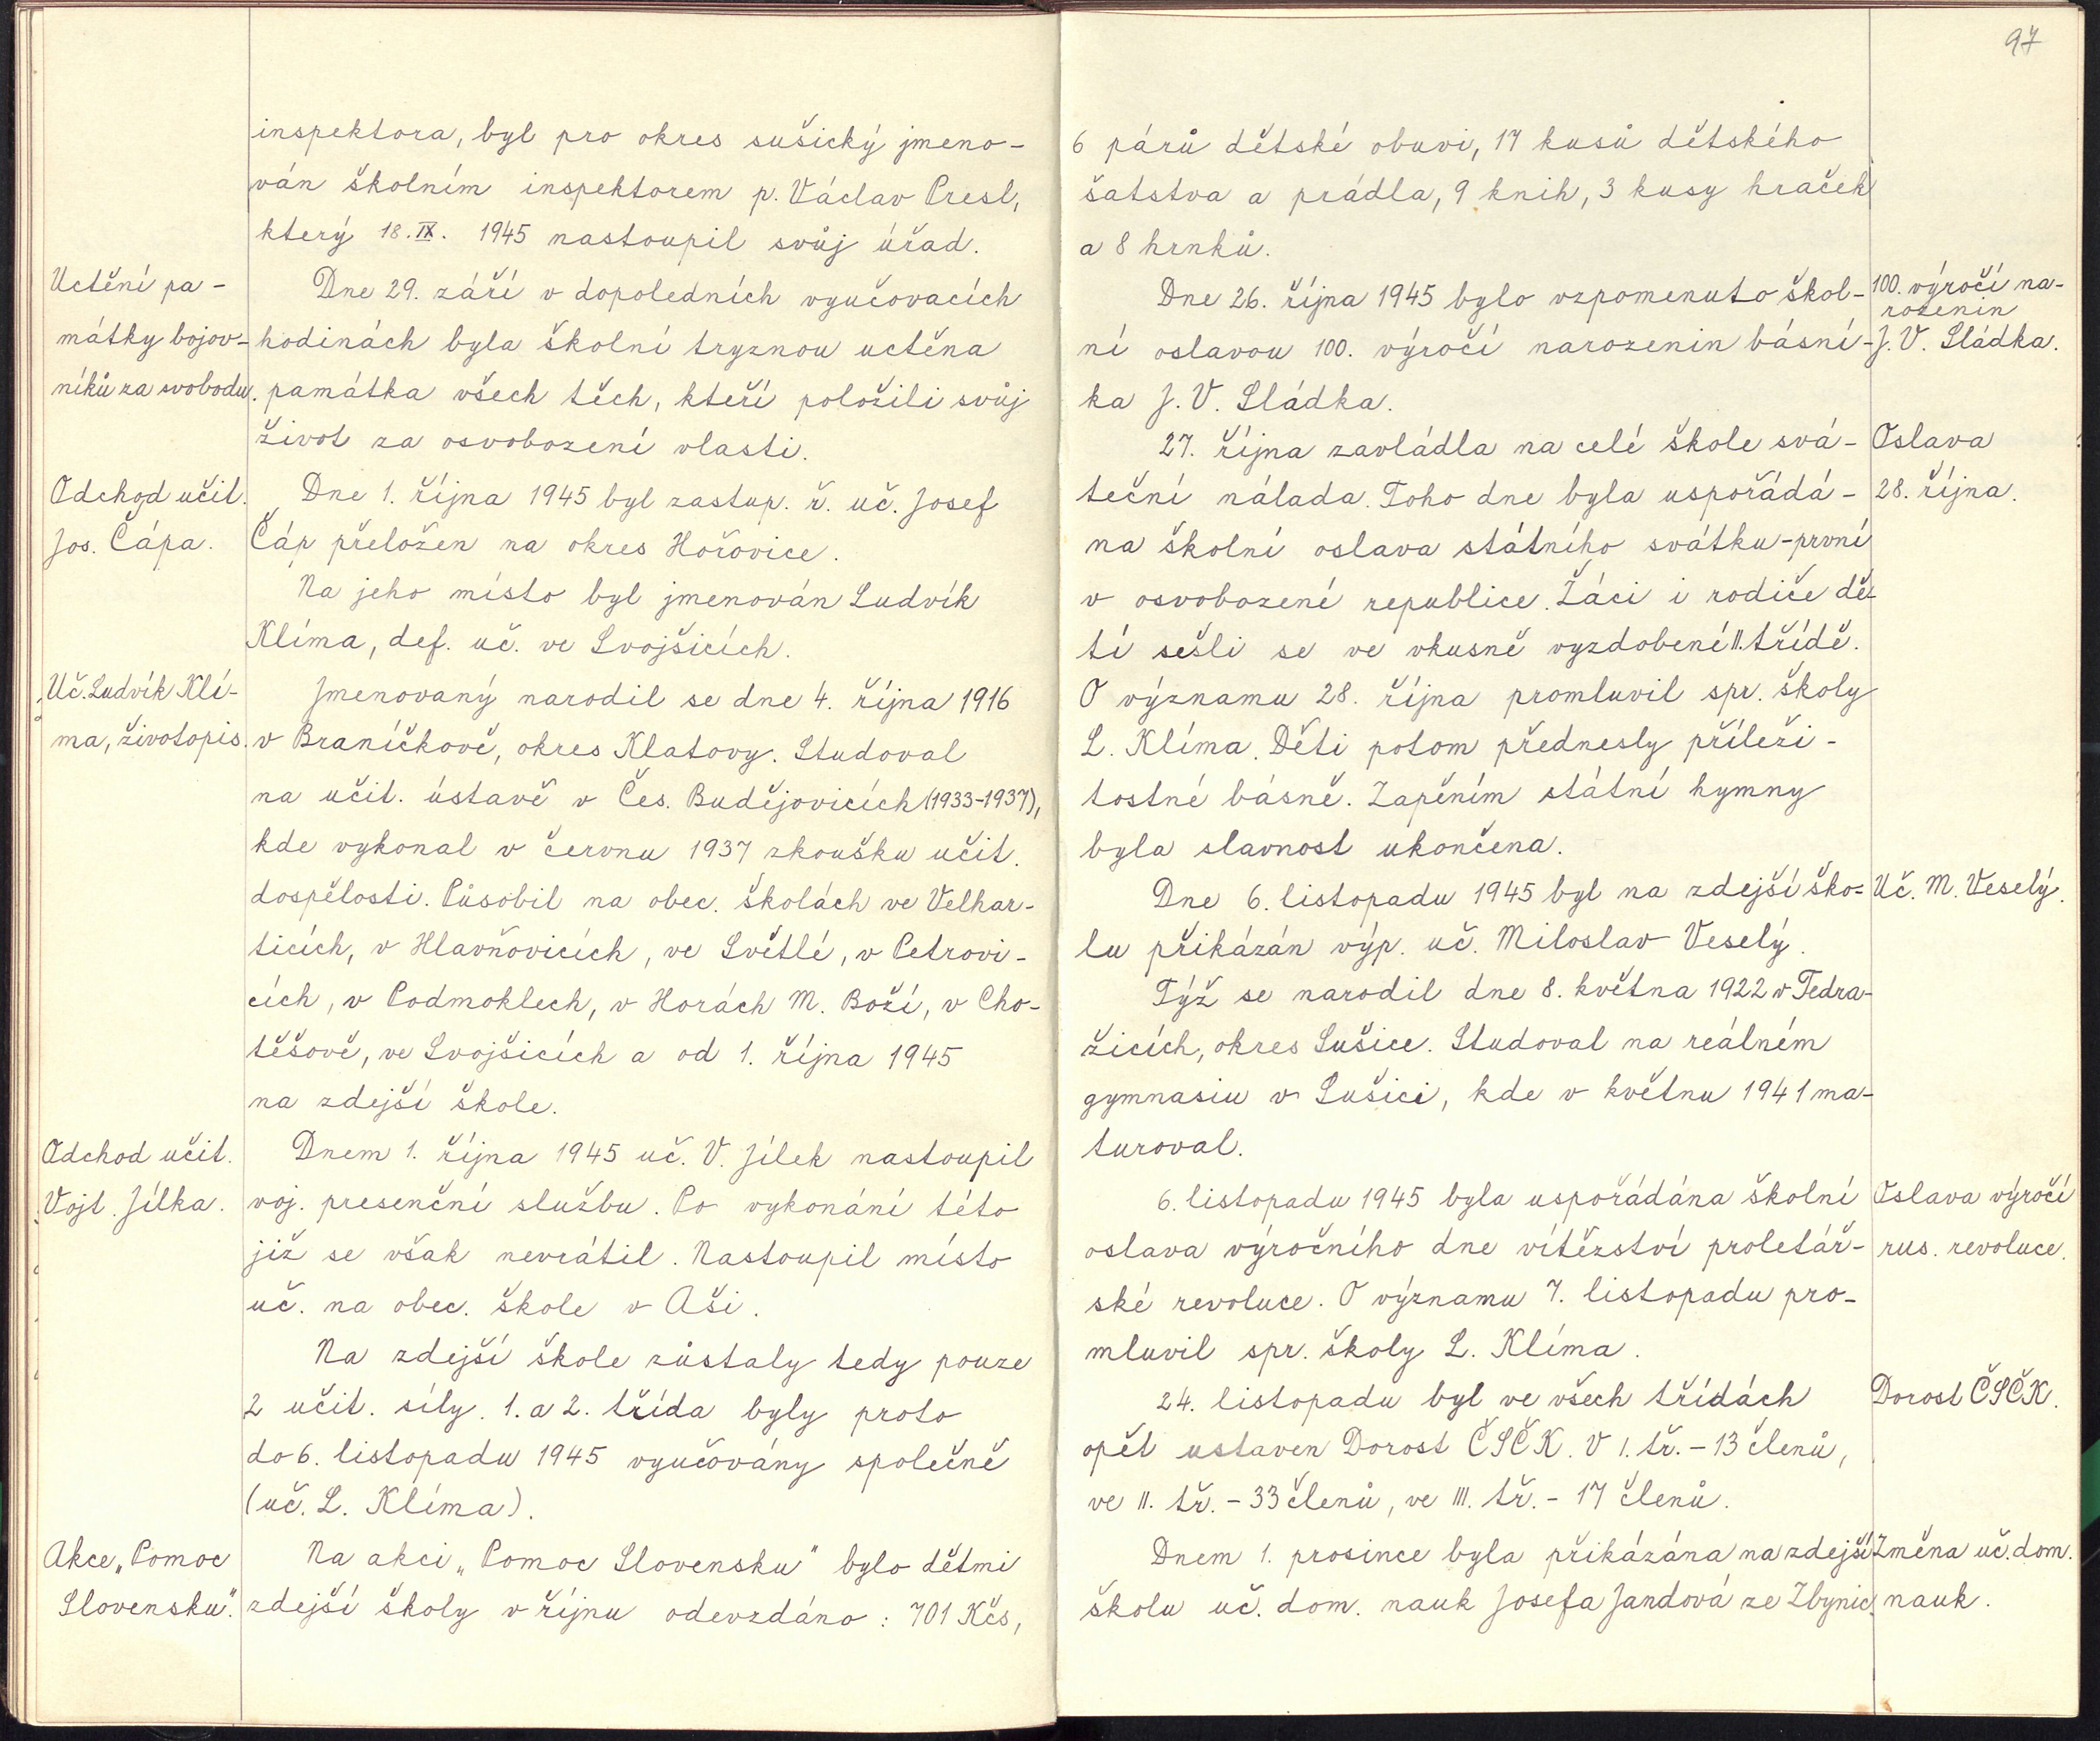 97
inspektora, byl pro okres sušický jmeno-
ván školním inspektorem p. Václav Presl,
který 18. IX. 1945 nastoupil svůj úřad.
Uctění pa-
mátky bojov-
níků za svobodu.
Dne 29. září v dopoledních vyučovacích
hodinách byla školní tryznou uctěna
památka všech těch, kteří položili svůj
život za osvobození vlasti.
Odchod učit.
Jos. Čápa.
Dne 1. října 1945 byl zastup. ř. uč. Josef
Čáp přeložen na okres Hořovice.
Na jeho místo byl jmenován Ludvík
Klíma, def. uč. ve Svojšicích.
Uč. Ludvík Klí-
ma, životopis.
Jmenovaný narodil se dne 4. října 1916
v Braníčkově, okres Klatovy. Studoval
na učit. ústavě v Čes. Budějovicích (1933-1937),
kde vykonal v červnu 1937 zkoušku učit.
dospělosti. Působil na obec. školách ve Velhar-
ticích, v Hlavňovicích, ve Světlé, v Petrovi-
cích, v Podmoklech, v Horách M. Boží, v Cho-
těšově, ve Svojšicích a od 1. října 1945
na zdejší škole.
Odchod učit.
Vojt. Jílka.
Dnem 1. října 1945 uč. V. Jílek nastoupil
voj. presenční službu. Po vykonání této
již se však nevrátil. Nastoupil místo
uč. na obec. škole v Aši.
Na zdejší škole zůstaly tedy pouze
2 učit. síly. 1. a 2. třída byly proto
do 6. listopadu 1945 vyučovány společně
(uč. L. Klíma).
Akce „Pomoc
Slovensku“.
Na akci „Pomoc Slovensku“ bylo dětmi
zdejší školy v říjnu odevzdáno: 701 Kčs,
6 párů dětské obuvi, 17 kusů dětského
šatstva a prádla, 9 knih, 3 kusy hraček
a 8 hrnků.
Dne 26. října 1945 bylo vzpomenuto škol-
ní oslavou 100. výročí narozenin básní-
ka J. V. Sládka.
100. výročí na-
rozenin
J. V. Sládka.
27. října zavládla na celé škole svá-
teční nálada. Toho dne byla uspořádá-
na školní oslava státního svátku - první
v osvobozené republice. Žáci i rodiče dě-
tí sešli se ve vkusně vyzdobené II. třídě.
O významu 28. října promluvil spr. školy
L. Klíma. Děti potom přednesly příleži-
tostné básně. Zapěním státní hymny
byla slavnost ukončena.
Oslava
28. října.
Dne 6. listopadu 1945 byl na zdejší ško-
lu přikázán výp. uč. Miloslav Veselý.
Uč. M. Veselý.
Týž se narodil dne 8. května 1922 v Tedra-
žicích, okres Sušice. Studoval na reálném
gymnasiu v Sušici, kde v květnu 1941 ma-
turoval.
6. listopadu 1945 byla uspořádána školní
oslava výročního dne vítězství proletář-
ské revoluce. O významu 7. listopadu pro-
mluvil spr. školy L. Klíma.
Oslava výročí
rus. revoluce.
24. listopadu byl ve všech třídách
opět ustaven Dorost ČSČK. V I. tř. - 13 členů,
ve II. tř. - 33 členů, ve III. tř. - 17 členů.
Dorost ČSČK.
Dnem 1. prosince byla přikázána na zdejší
školu uč. dom. nauk Josefa Jandová ze Zbynic.
Změna uč. dom.
nauk.